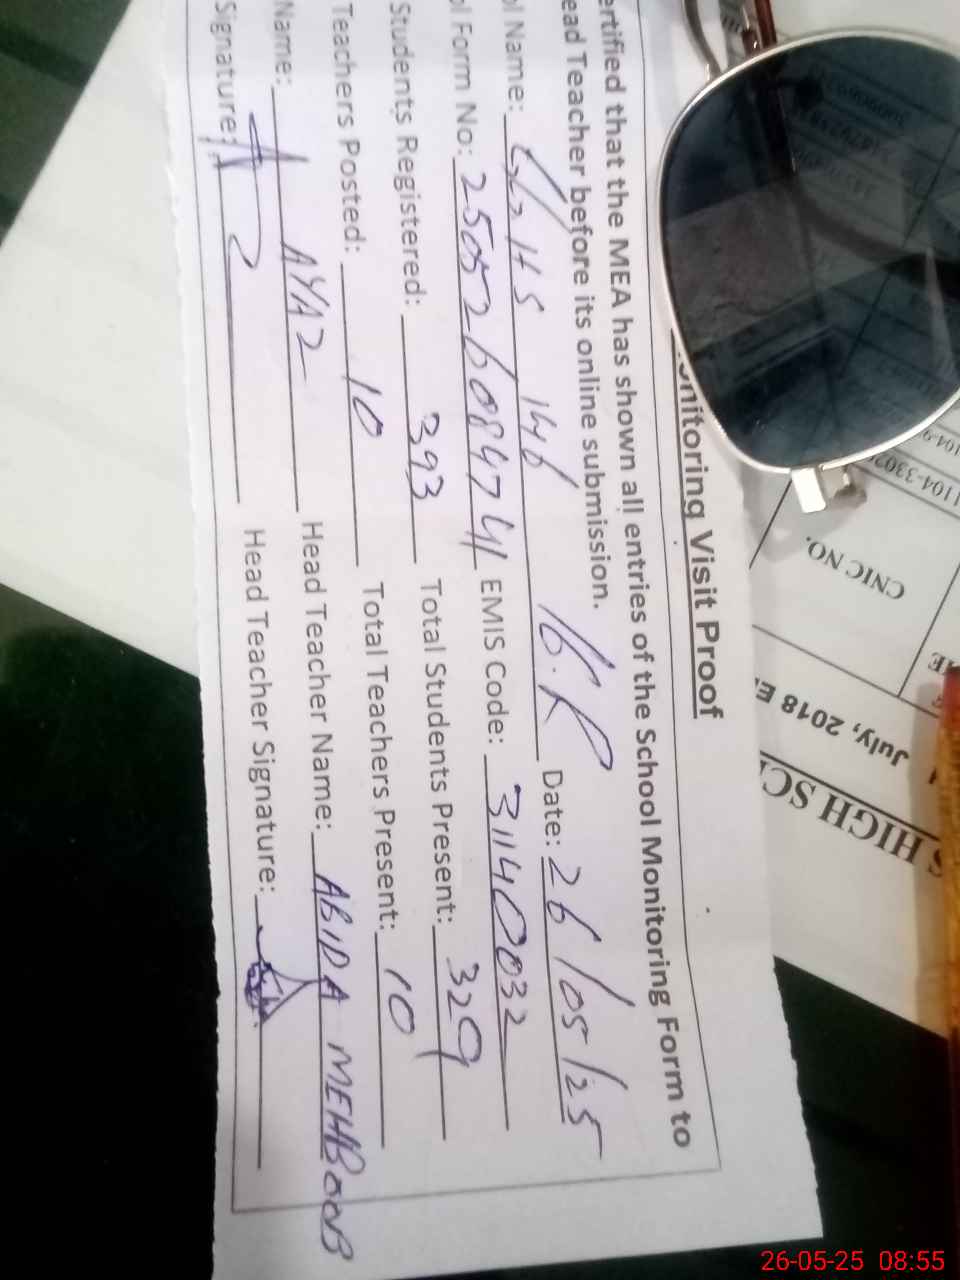 onitoring Visit Proof
ertified that the MEA has shown all entries of the School Monitoring Form to
ead Teacher before its online submission.
ol Name: GGHS 146 16.R Date: 26/05/25
ol Form No: 25052608474 EMIS Code: 31140032
Students Registered: 393 Total Students Present: 329
Teachers Posted: 10 Total Teachers Present: 10
Name: AYAZ Head Teacher Name: ABIDA MEHBOOB
Signature: Head Teacher Signature:
HIGH SC
July, 2018 E
CNIC NO.
26-05-25 08:55